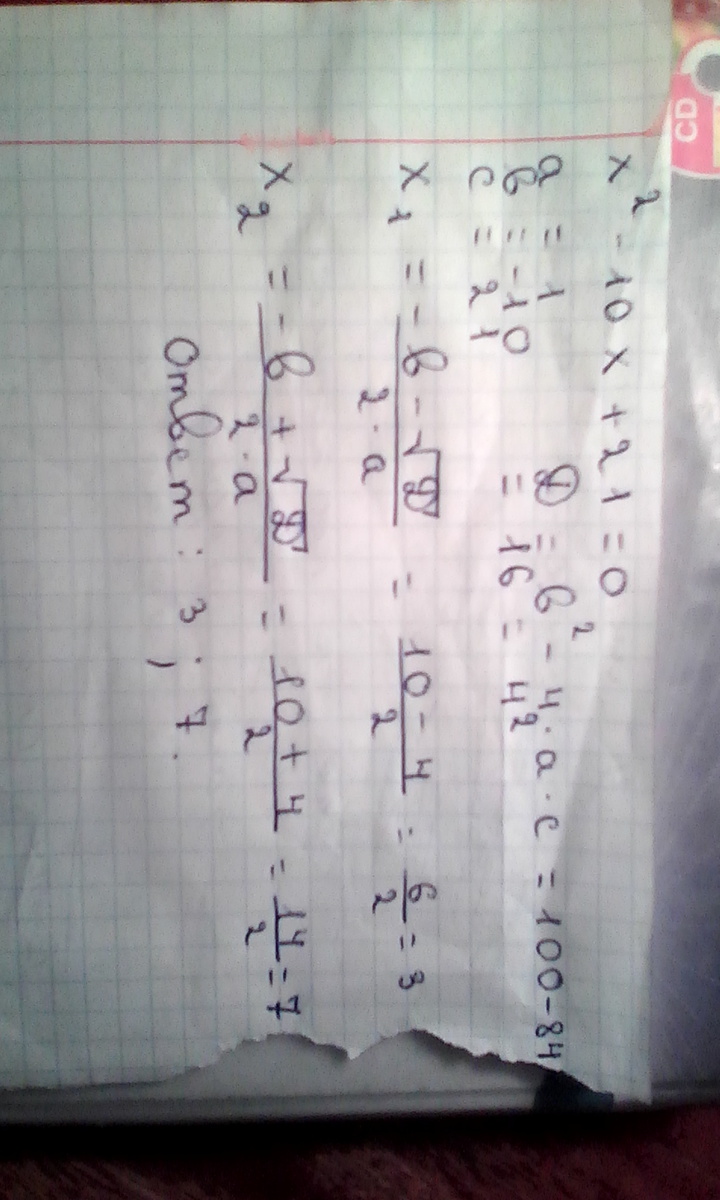 CD
x² - 10x + 21 = 0
a = 1
b = -10
c = 21
D = b² - 4·a·c = 100 - 84
= 16 = 4²
x₁ = (-b - √D)/(2·a) = (10 - 4)/2 = 6/2 = 3
x₂ = (-b + √D)/(2·a) = (10 + 4)/2 = 14/2 = 7
Ответ: 3; 7.